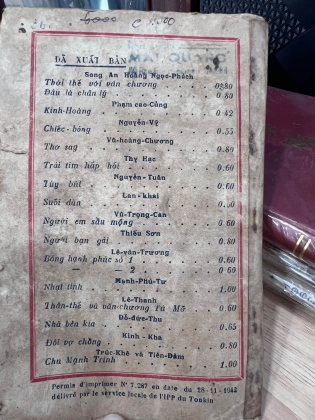 ĐÃ XUẤT BẢN
Song An Hoàng Ngọc-Phách
Thời thế với văn chương 0$80
Đâu là chân lý . . . . . . 0.80
Phạm-cao-Củng
Kinh-Hoàng . . . . . . 0.42
Nguyễn-Vỹ
Chiếc-bóng . . . . . . 0.55
Vũ-hoàng-Chương
Thơ say . . . . . . 0.80
Thy Hạc
Trái tim hấp hối . . . . . 0.60
Nguyễn-Tuân
Tùy bút . . . . . . 0.60
Lan-khai
Suối đàn . . . . . .
Vũ-Trọng-Can
Người em sầu mộng . . . . 0.60
Thiếu Sơn
Người bạn gái . . . . . 0.80
Lê-văn-Trương
Đồng hạnh phúc số 1 . . . . 0.60
— — 2 . . . . 0.60
Mạnh-Phú-Tư
Nhạt tình . . . . . . 1.00
Lê-Thanh
Thân-thế và văn-chương Tú Mỡ . 0.60
Đỗ-đức-Thu
Nhà bên kia . . . . . . 0.65
Kinh-Kha
Đôi vợ chồng . . . . . . 0.80
Trúc-Khê và Tiên-Đàm
Chu Mạnh Trinh . . . . . 1.00
Permis d'imprimer N° 7.287 en date du 28-11-1942
délivré par le service locale de l'IPP du Tonkin